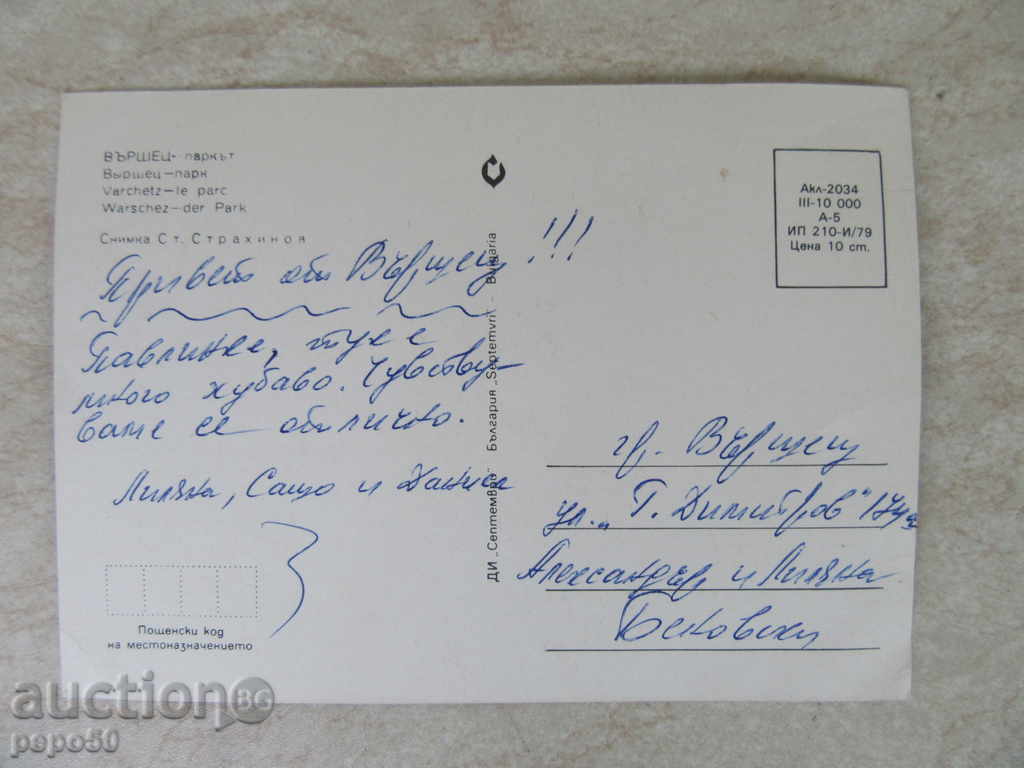 ВЪРШЕЦ- паркът
Выршец—парк
Varchetz—le parc
Warschez—der Park
Снимка Ст. Страхинов
Привет от Вършец!!!
Павлинке, тук е
много хубаво. Чувству-
ваме се отлично.
Лиляна, Сашо и Данчо
Пощенски код
на местоназначението
ДИ „Септември" България „Septemvri" - Bulgaria
Акл-2034
III-10 000
А-5
ИП 210-И/79
Цена 10 ст.
гр. Вършец
ул. „Г. Димитров"
Александър и Лиляна
Бековски
auction BG
pepo50